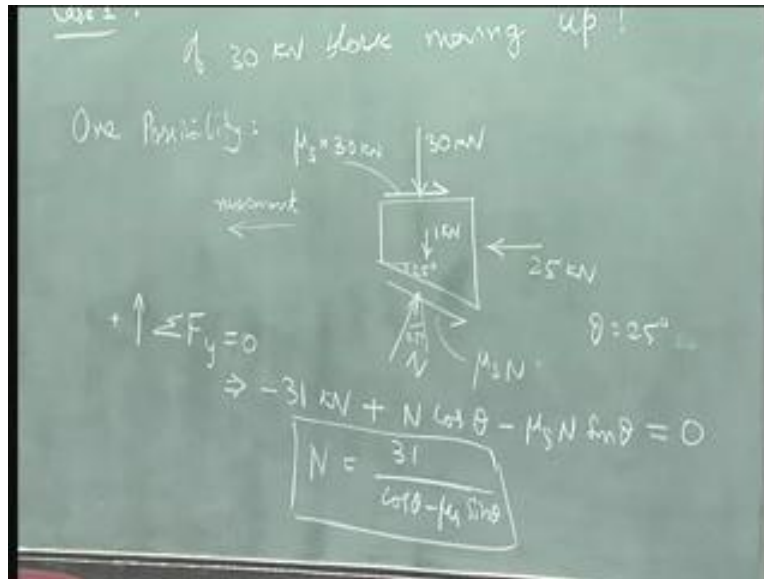 Case 1 :
of 30 kN block moving up !
One Possibility :
μs × 30 kN
30 kN
movement
1 kN
25°
25 kN
θ = 25°
N
μsN
+ ↑ ΣFy = 0
⇒ -31 kN + N cos θ - μs N sin θ = 0
N = 31 / cosθ - μs sinθ